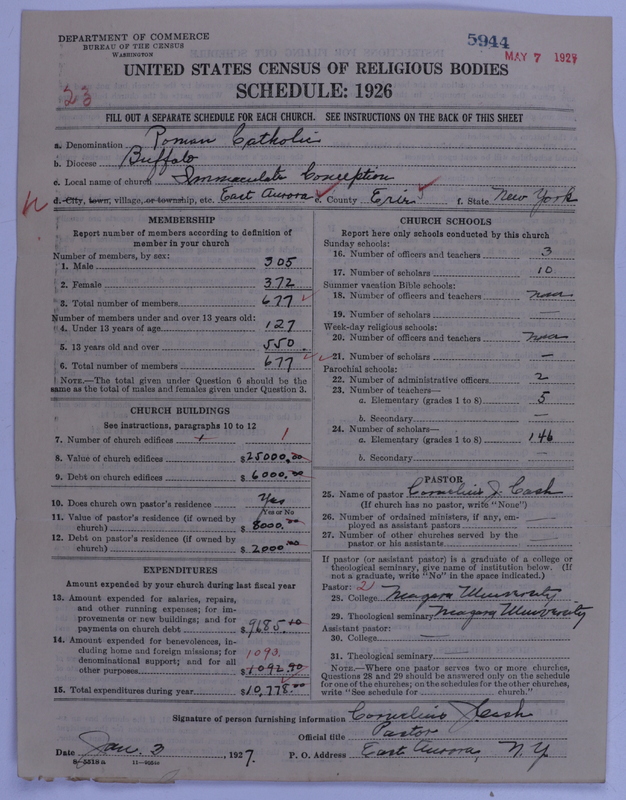 DEPARTMENT OF COMMERCE
BUREAU OF THE CENSUS
WASHINGTON
5944
MAY 7 1927
UNITED STATES CENSUS OF RELIGIOUS BODIES
SCHEDULE: 1926
23
FILL OUT A SEPARATE SCHEDULE FOR EACH CHURCH. SEE INSTRUCTIONS ON THE BACK OF THIS SHEET
a. Denomination Roman Catholic
b. Diocese Buffalo
c. Local name of church Immaculate Conception
d. City, town, village, or township, etc. East Aurora e. County Erie f. State New York
MEMBERSHIP
Report number of members according to definition of
member in your church
Number of members, by sex:
1. Male 305
2. Female 372
3. Total number of members 677
Number of members under and over 13 years old:
4. Under 13 years of age 127
5. 13 years old and over 550
6. Total number of members 677
NOTE.—The total given under Question 6 should be the
same as the total of males and females given under Question 3.
CHURCH BUILDINGS
See instructions, paragraphs 10 to 12
7. Number of church edifices 1
8. Value of church edifices $25000.00
9. Debt on church edifices $6000.00
10. Does church own pastor's residence Yes
Yes or No
11. Value of pastor's residence (if owned by
church) $8000.00
12. Debt on pastor's residence (if owned by
church) $2000.00
EXPENDITURES
Amount expended by your church during last fiscal year
13. Amount expended for salaries, repairs,
and other running expenses; for im-
provements or new buildings; and for
payments on church debt $9685.10
14. Amount expended for benevolences, in-
cluding home and foreign missions; for
denominational support; and for all
other purposes 1093. $1092.90
15. Total expenditures during year $10,778.00
CHURCH SCHOOLS
Report here only schools conducted by this church
Sunday schools:
16. Number of officers and teachers 3
17. Number of scholars 10
Summer vacation Bible schools:
18. Number of officers and teachers none
19. Number of scholars —
Week-day religious schools:
20. Number of officers and teachers none
21. Number of scholars —
Parochial schools:
22. Number of administrative officers 2
23. Number of teachers—
a. Elementary (grades 1 to 8) 5
b. Secondary —
24. Number of scholars—
a. Elementary (grades 1 to 8) 146
b. Secondary —
PASTOR
25. Name of pastor Cornelius J. Cash
(If church has no pastor, write "None")
26. Number of ordained ministers, if any, em-
ployed as assistant pastors —
27. Number of other churches served by the
pastor or his assistants —
If pastor (or assistant pastor) is a graduate of a college or
theological seminary, give name of institution below. (If
not a graduate, write "No" in the space indicated.)
Pastor: 21
28. College Niagara University
29. Theological seminary Niagara University
Assistant pastor:
30. College —
31. Theological seminary —
NOTE.—Where one pastor serves two or more churches,
Questions 28 and 29 should be answered only on the schedule
for one of the churches; on the schedules for the other churches,
write "See schedule for ______ church."
Signature of person furnishing information Cornelius J. Cash
Official title Pastor
Date Jan. 3, 1927. P. O. Address East Aurora, N. Y.
8-5518a